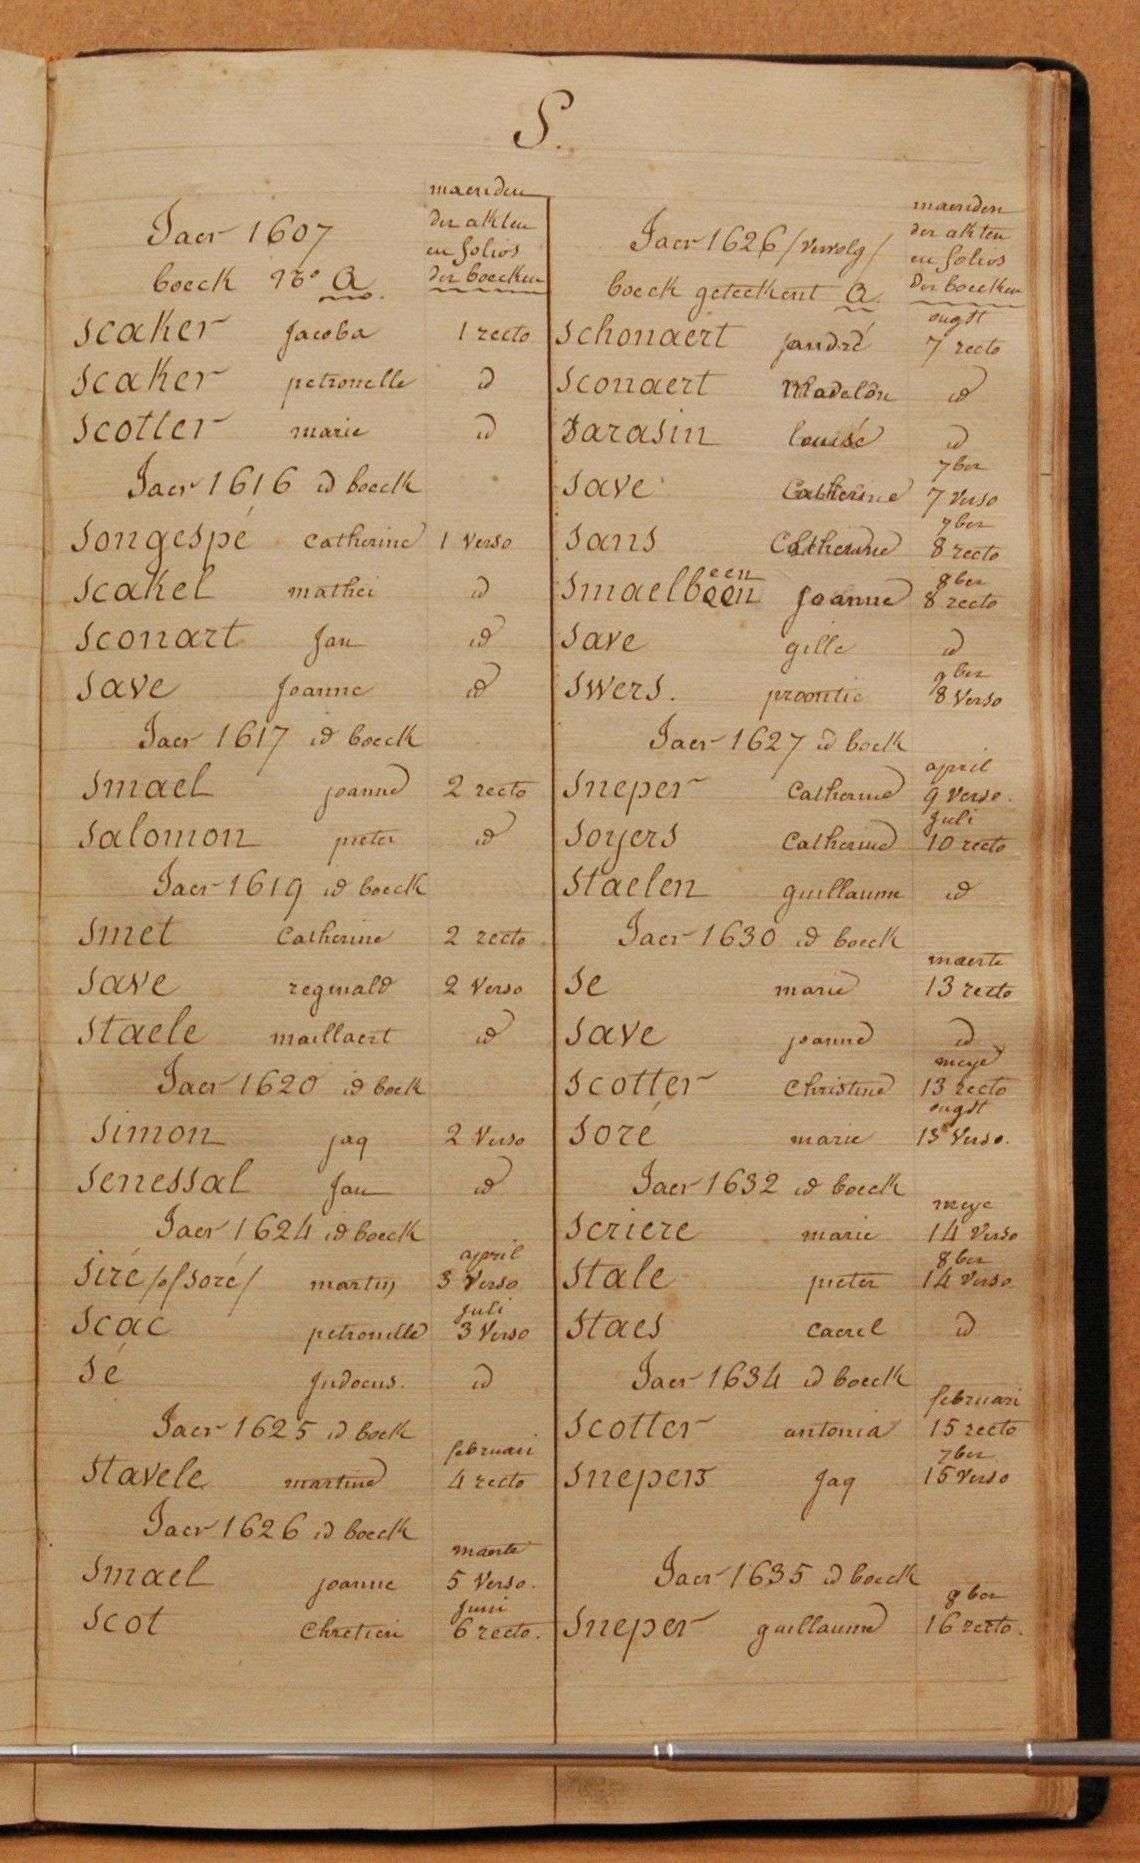 S.
maenden
Jaer 1607 der akten
en folios
boeck No A der boecken
scaker Jacoba 1 recto
scaker petronelle id
scotter marie id
Jaer 1616 id boeck
songespé catherine 1 verso
scakel mathei id
sconart Jan id
save Joanne id
Jaer 1617 id boeck
smael joanne 2 recto
salomon pieter id
Jaer 1619 id boeck
smet Catherine 2 recto
save reginald 2 verso
staele maillaert id
Jaer 1620 id boek
simon jaq 2 verso
senessal Jan id
Jaer 1624 id boeck
april
siré /of soré/ martin 3 verso
juli
scac petronelle 3 verso
sé Judocus. id
Jaer 1625 id boek
februari
stavele martine 4 recto
Jaer 1626 id boeck
maerte
smael joanne 5 verso.
juni
scot Chretien 6 recto.
maenden
Jaer 1626 /vervolg/ der akten
en folios
boeck geteekent A. der boecken
ougst
schonaert jandré 7 recto
sconaert Madeldn id
sarasin louise id
7ber
save Catherine 7 verso
7ber
sans Catherine 8 recto
een 8ber
smaelbeen Joanne 8 recto
save gille id
9ber
swers. proontie 8 verso
Jaer 1627 id boek
april
sneper Catherine 9 verso.
juli
soyers Catherine 10 recto
staelen guillaume id
Jaer 1630 id boeck
maerte
se marie 13 recto
save joanne id
meye
scotter Christine 13 recto
ougst
soré marie 13 verso.
Jaer 1632 id boeck
meye
scriere marie 14 verso
8ber
stale pieter 14 verso
staes caerel id
Jaer 1634 id boeck
februari
scotter antonia 15 recto
7ber
snepers Jaq 15 verso
Jaer 1635 id boeck
9ber
sneper guillaume 16 recto.